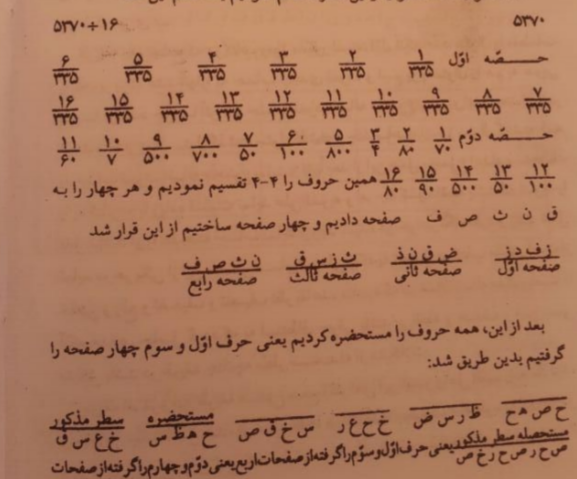 ۵۳۷۰
۵۳۷۰÷۱۶
حصّه اوّل ۱/۳۳۵ ۲/۳۳۵ ۳/۳۳۵ ۴/۳۳۵ ۵/۳۳۵ ۶/۳۳۵
۷/۳۳۵ ۸/۳۳۵ ۹/۳۳۵ ۱۰/۳۳۵ ۱۱/۳۳۵ ۱۲/۳۳۵ ۱۳/۳۳۵ ۱۴/۳۳۵ ۱۵/۳۳۵ ۱۶/۳۳۵
حصّه دوّم ۱/۷۰ ۲/۸۰ ۳/۴ ۴/۷ ۵/۸۰۰ ۶/۱۰۰ ۷/۵۰ ۸/۷۰۰ ۹/۵۰۰ ۱۰/۷ ۱۱/۶۰
۱۲/۱۰۰ ۱۳/۵۰ ۱۴/۵۰۰ ۱۵/۹۰ ۱۶/۸۰ همین حروف را ۴-۴ تقسیم نمودیم و هر چهار را به
ق ن ث ص ف صفحه دادیم و چهار صفحه ساختیم از این قرار شد
ز ف د ز ض ق ن ذ ث ز س ق ن ث ص ف
صفحه اوّل صفحه ثانی صفحه ثالث صفحه رابع
بعد از این، همه حروف را مستحضره کردیم یعنی حرف اوّل و سوم چهار صفحه را
گرفتیم بدین طریق شد:
ح ص ه ح ظ ر س ض خ ح ع ر س خ ق ص مستحضره سطر مذکور
ح ه ظ س خ ع س ق
مستحصله سطر مذکور یعنی حرف اوّل و سوّم را گرفته از صفحات اربع یعنی دوّم و چهارم را گرفته از صفحات
ص ح ر ص ح ر خ ص